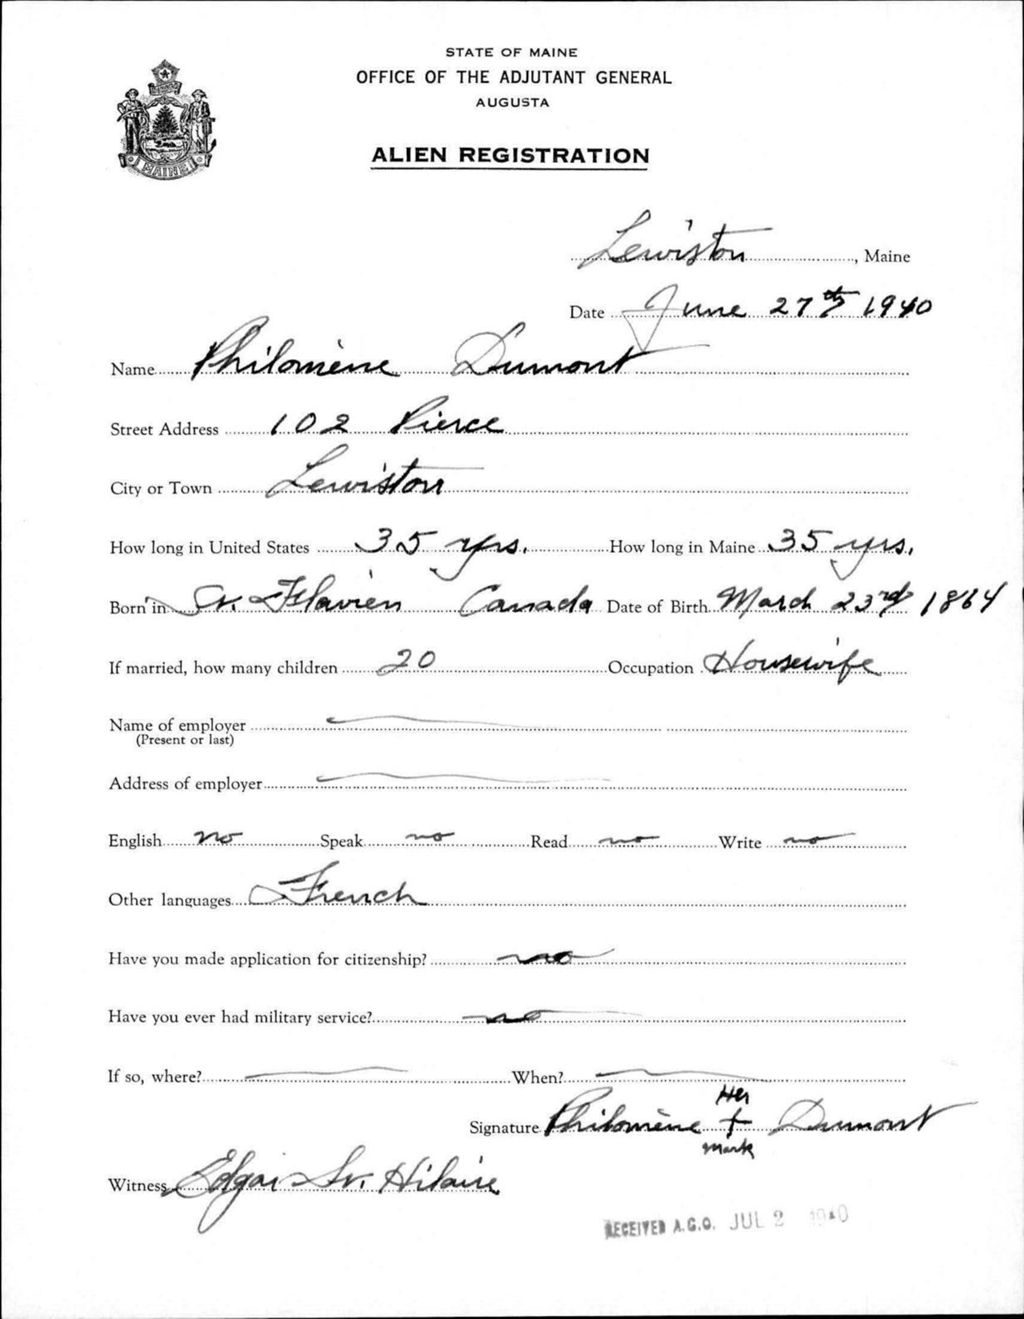 STATE OF MAINE
OFFICE OF THE ADJUTANT GENERAL
AUGUSTA
ALIEN REGISTRATION
MAINE
Lewiston, Maine
Date June 27th 1940
Name Philomène Dumont
Street Address 102 Pierce
City or Town Lewiston
How long in United States 35 yrs. How long in Maine 35 yrs.
Born in St. Flavien Canada Date of Birth March 23rd 1864
If married, how many children 20 Occupation Housewife
Name of employer
(Present or last)
Address of employer
English no Speak no Read no Write no
Other languages French
Have you made application for citizenship? no
Have you ever had military service? no
If so, where? When?
Her
Signature Philomène + Dumont
mark
Witness Edgar St. Hilaire
RECEIVED A.G.O. JUL 2 1940